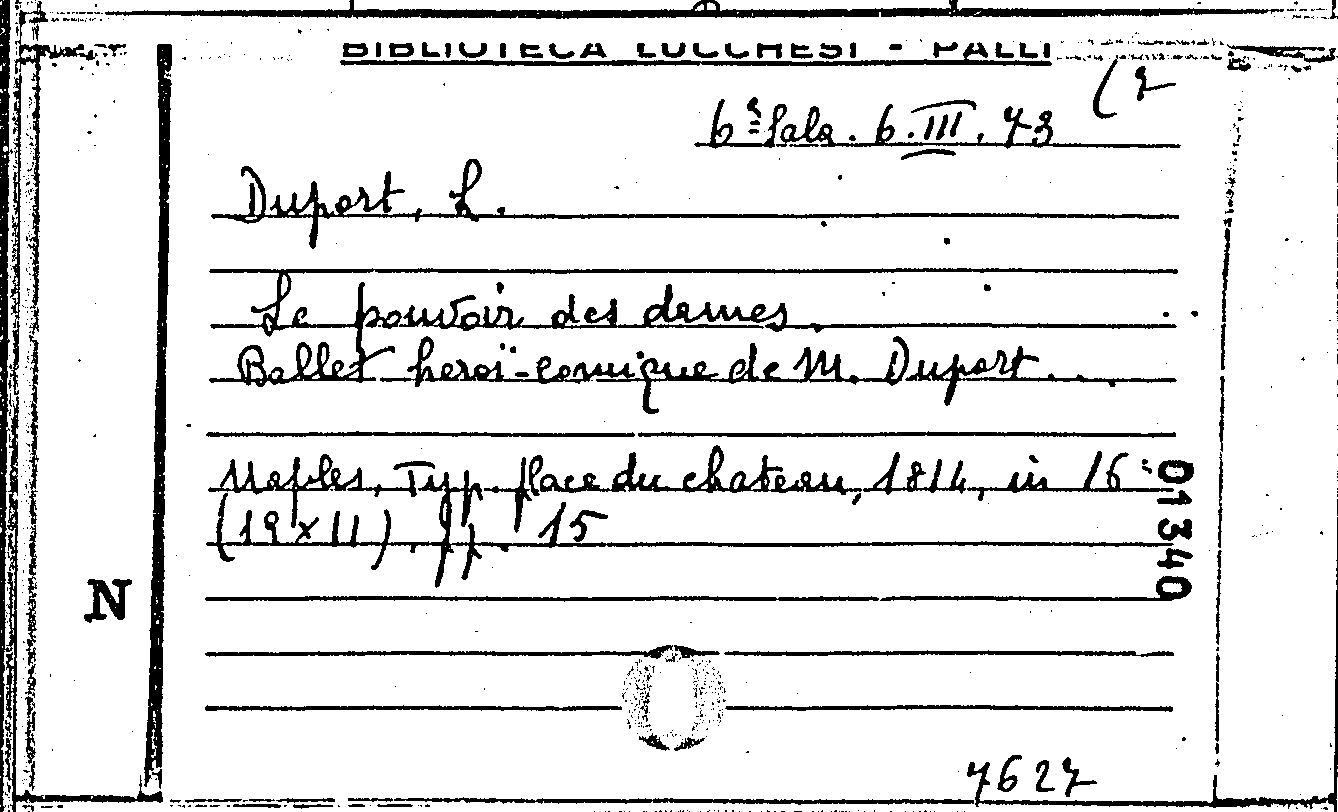 BIBLIOTECA LUCCHESI - PALLI
(2
6ª Sala. 6.III.73
Duport, L.
Le pouvoir des dames.
Ballet heroï-comique de M. Duport...
Naples, Typ. place du chateau, 1814, in 16°
(19 x 11). pp. 15
01340
N
7627